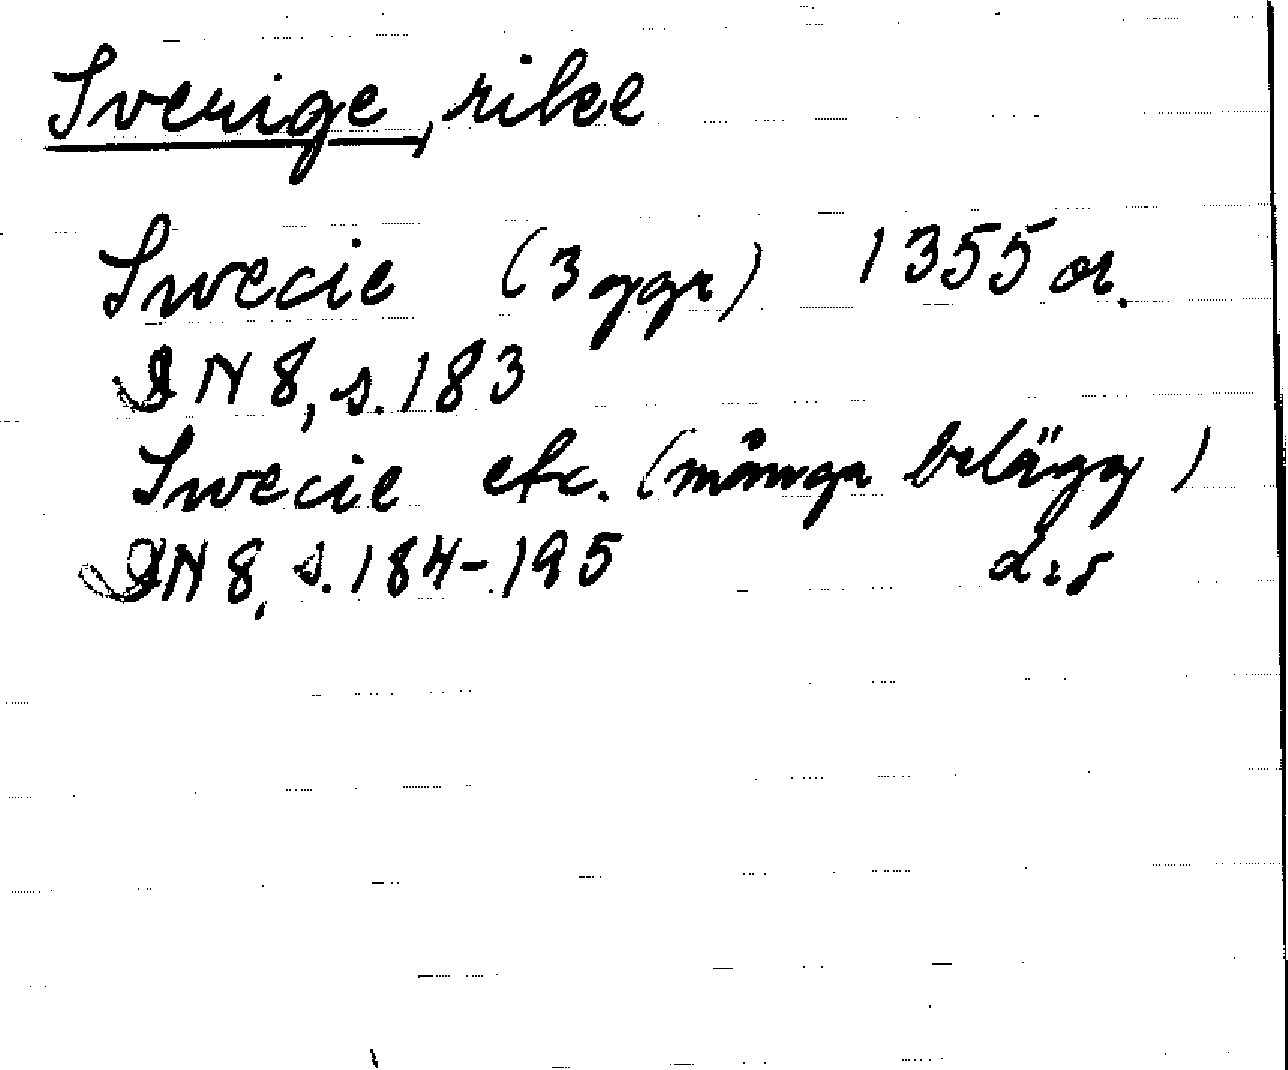 Sverige, rike
Swecie (3 ggr) 1355 or.
DN 8, s. 183
Swecie etc. (många belägg)
DN 8, s. 184-195 d:o